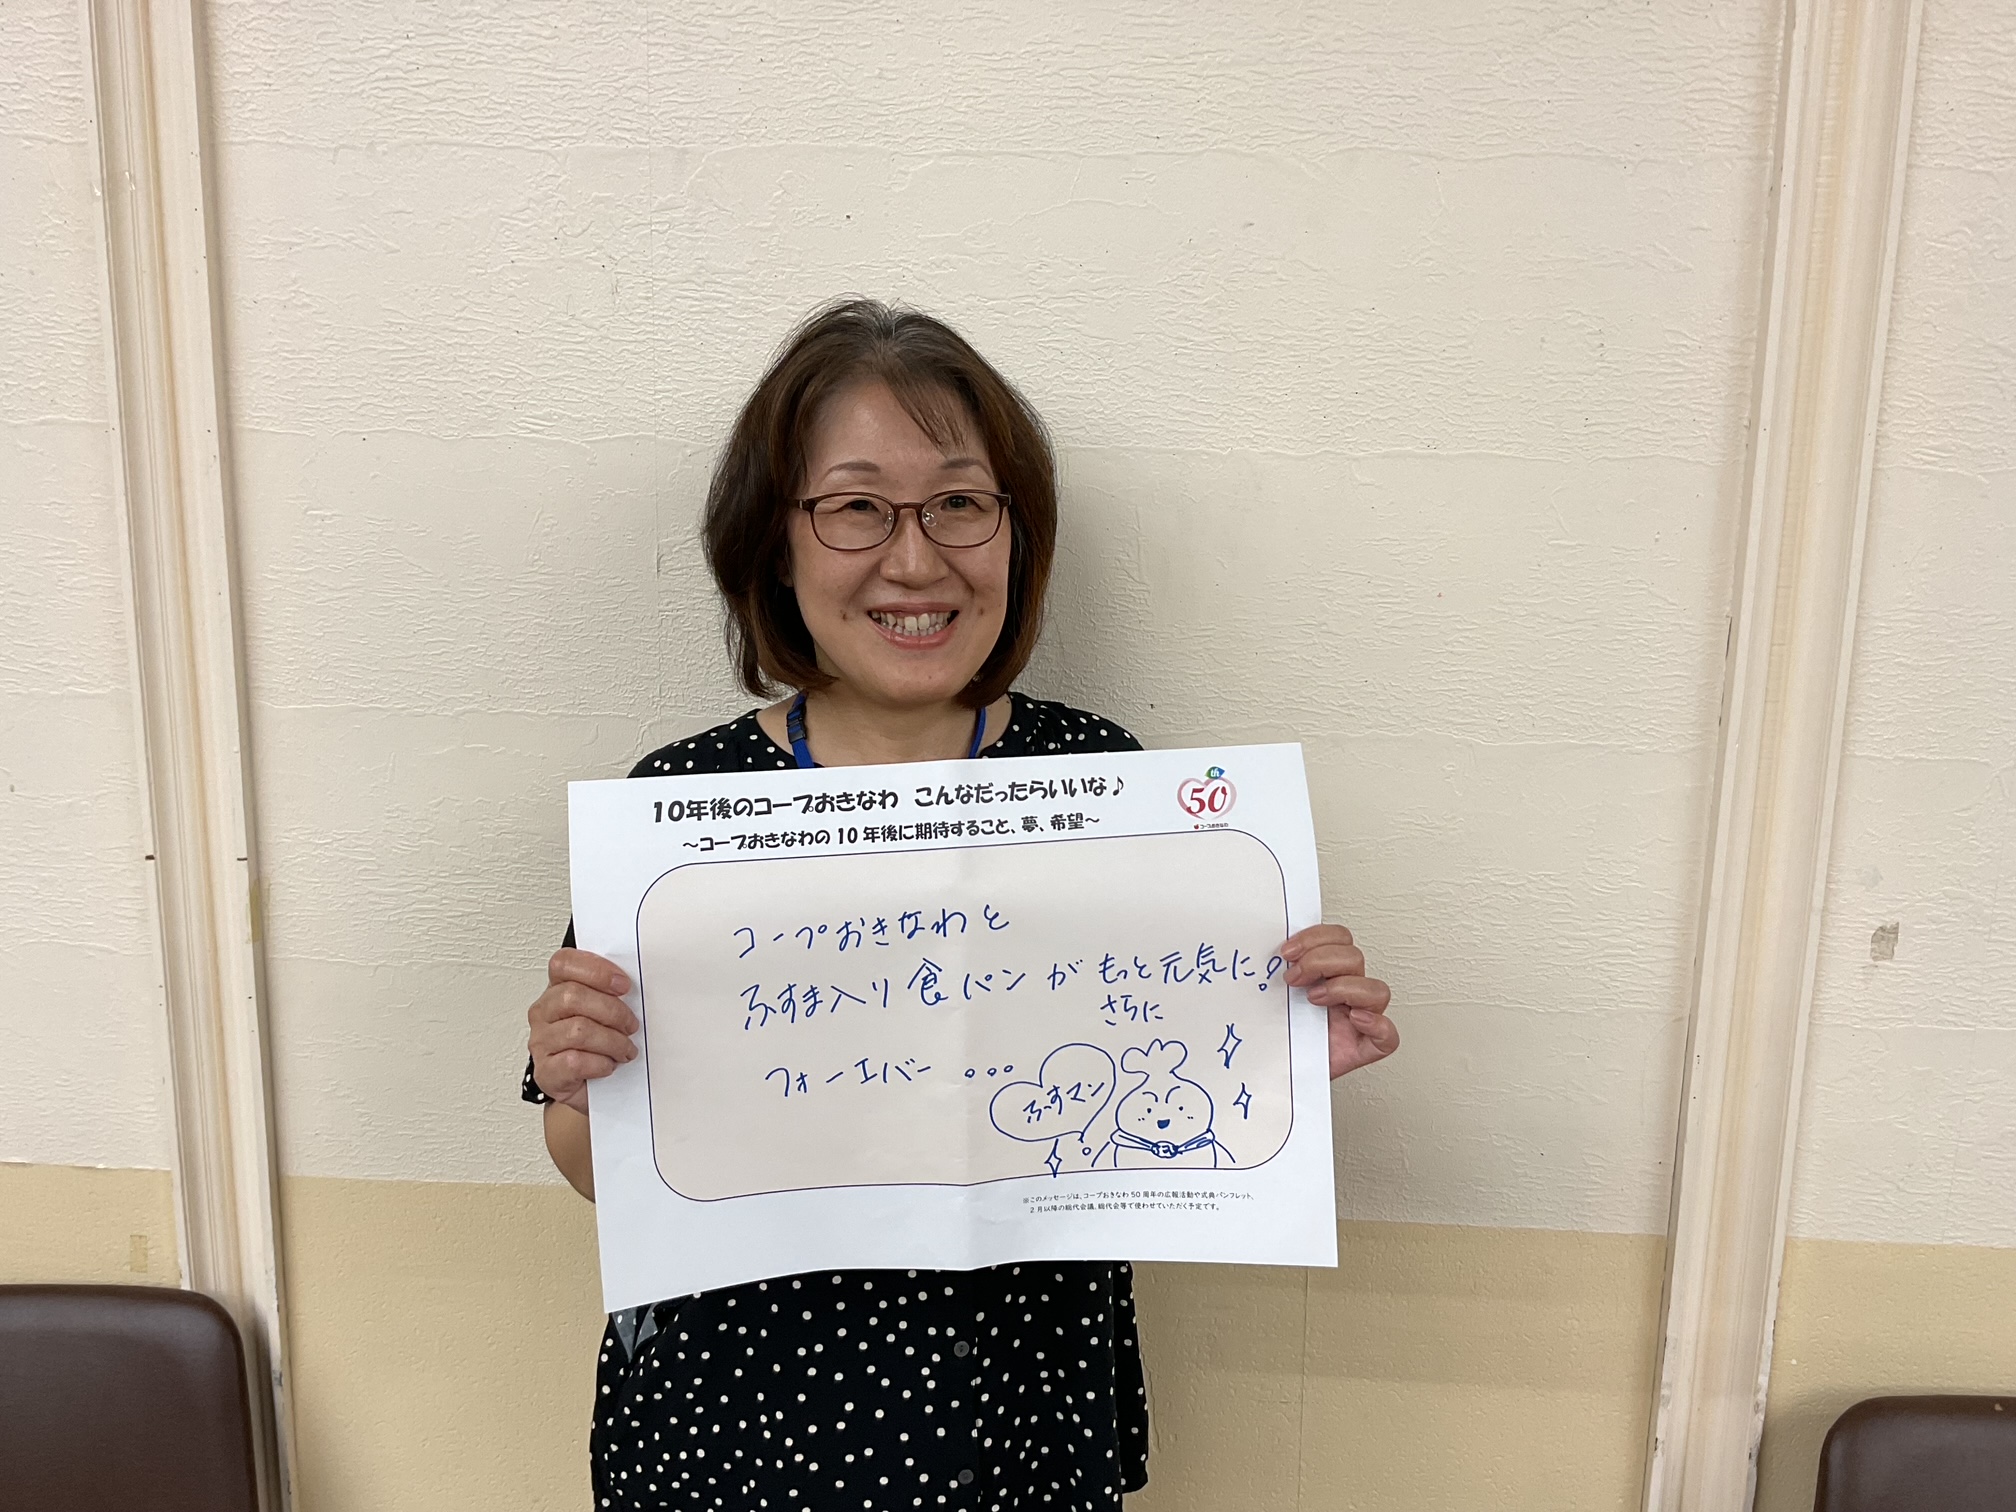 10年後のコープおきなわ こんなだったらいいな♪
～コープおきなわの10年後に期待すること、夢、希望～
50th
コープおきなわ
コープおきなわと
ふすま入り食パンがもっと元気に!
さらに
フォーエバー 。。。
ふすマン
※このメッセージは、コープおきなわ50周年の広報活動や式典パンフレット、
2月以降の総代会議、総代会等で使わせていただく予定です。